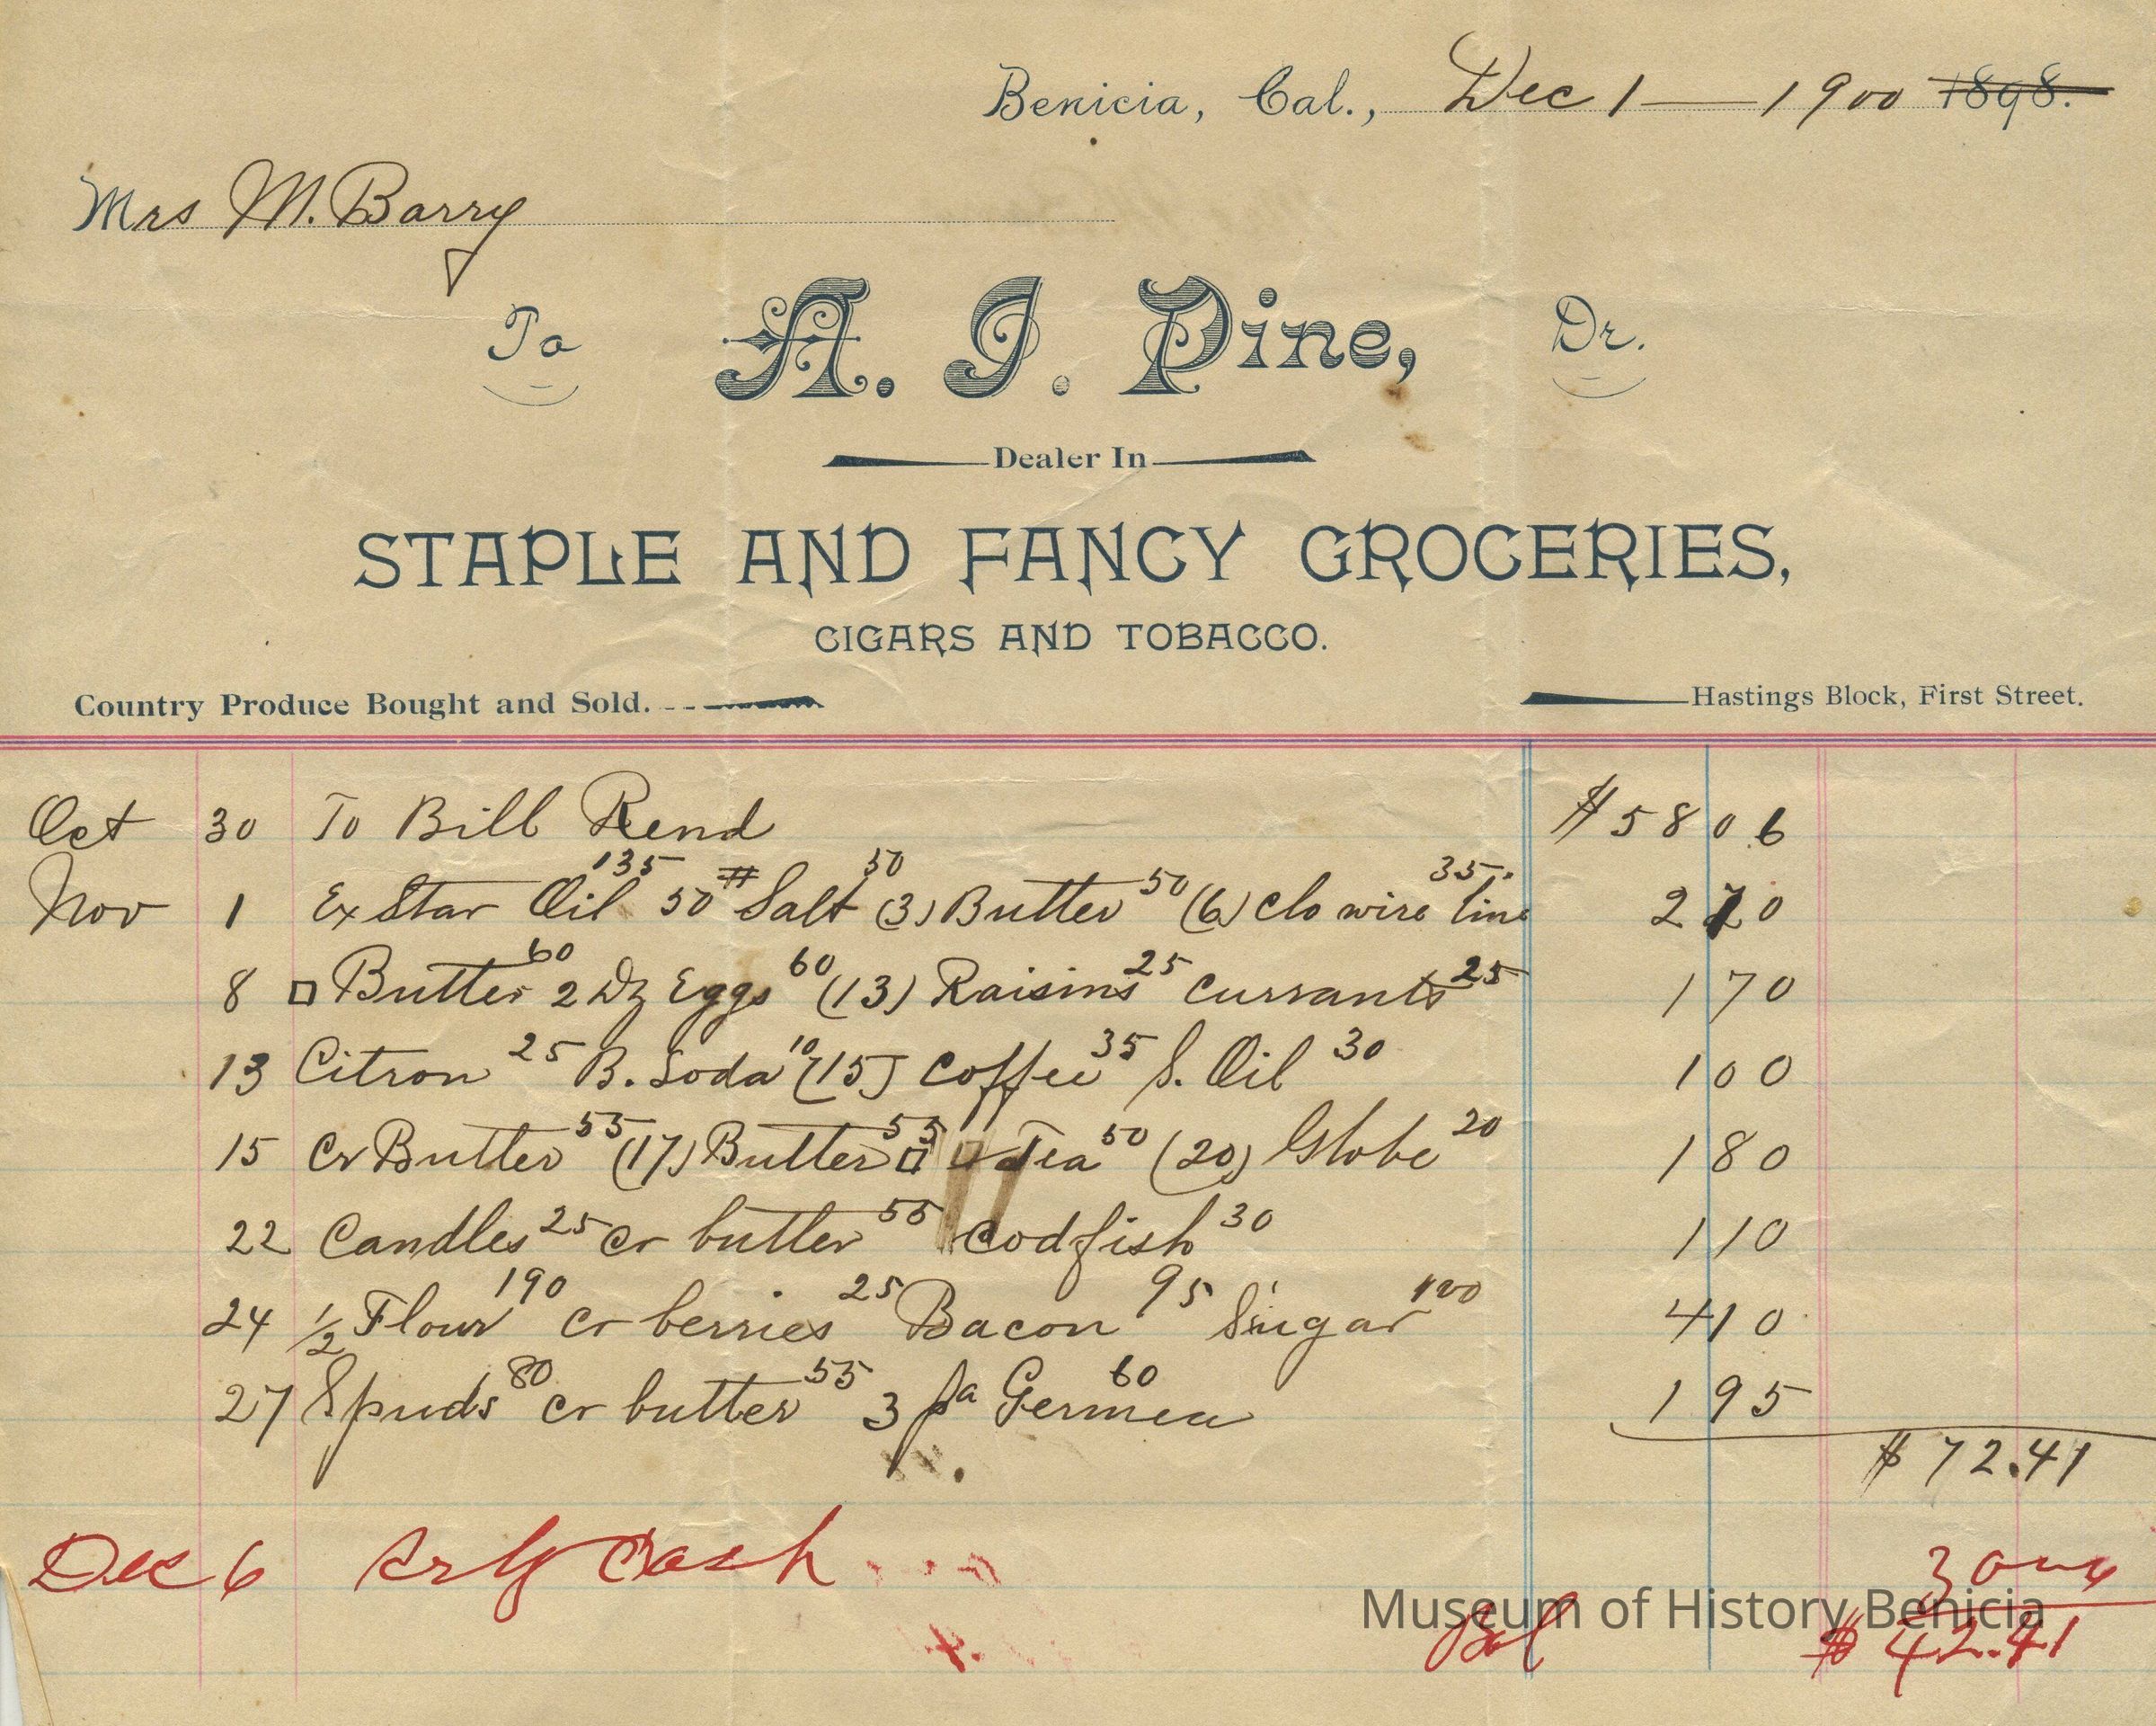 Benicia, Cal., Dec 1 — 1900 1898.
Mrs M. Barry
To A. J. Pine, Dr.
Dealer In
STAPLE AND FANCY GROCERIES,
CIGARS AND TOBACCO.
Country Produce Bought and Sold. Hastings Block, First Street.
Oct 30 To Bill Rend $58 06
Nov 1 Ex Star Oil 135 50 # Salt 50 (3) Butter 50 (6) Clo wire line 35. 2 70
8 □ Butter 60 2 Dz Eggs 60 (13) Raisins 25 Currants 25 1 70
13 Citron 25 B. Soda 10 (15) Coffee 35 S. Oil 30 1 00
15 Cr Butter 55 (17) Butter □ 55 Tea 50 (20) Globe 20 1 80
22 Candles 25 Cr butter 55 Codfish 30 1 10
24 1/2 Flour 190 Cr berries 25 Bacon 95 Sugar 100 4 10
27 Spuds 80 Cr butter 55 3 pa Germea 60 1 95
$ 72.41
Dec 6 Cr By Cash 30
Museum of History Benicia
Bal $ 42.41